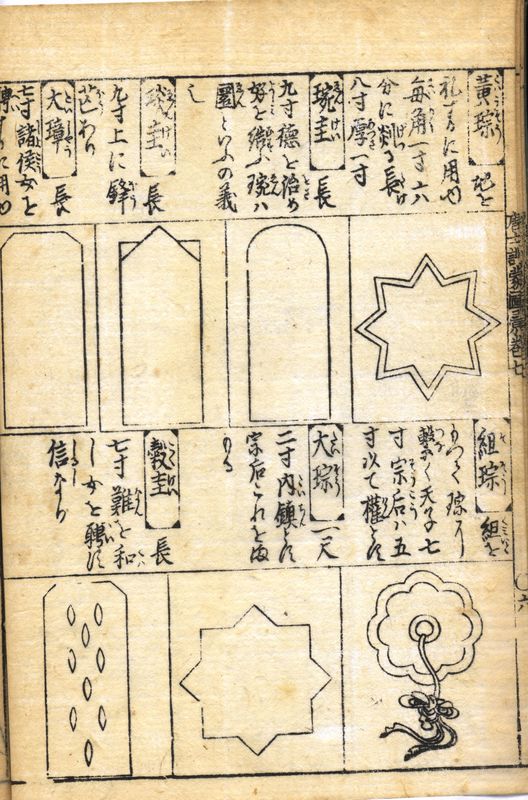 黄琮 地を
礼するに用ゆ
毎角一寸六
分に剡る長
八寸厚一寸
琬圭 長
九寸徳を治め
好を結ぶ琬ハ
圜といふの義
也
琰圭 長
九寸上に鋒
芒あり
大璋 長
七寸諸侯女を
聘するに用ゆ
組琮 組を
もつて琮に
繋く天子七
寸宗后ハ五
寸以て權とす
大琮 一尺
二寸内鎮とす
宗后これを守
る
穀圭 長
七寸難を和
し女を聘す
信なり